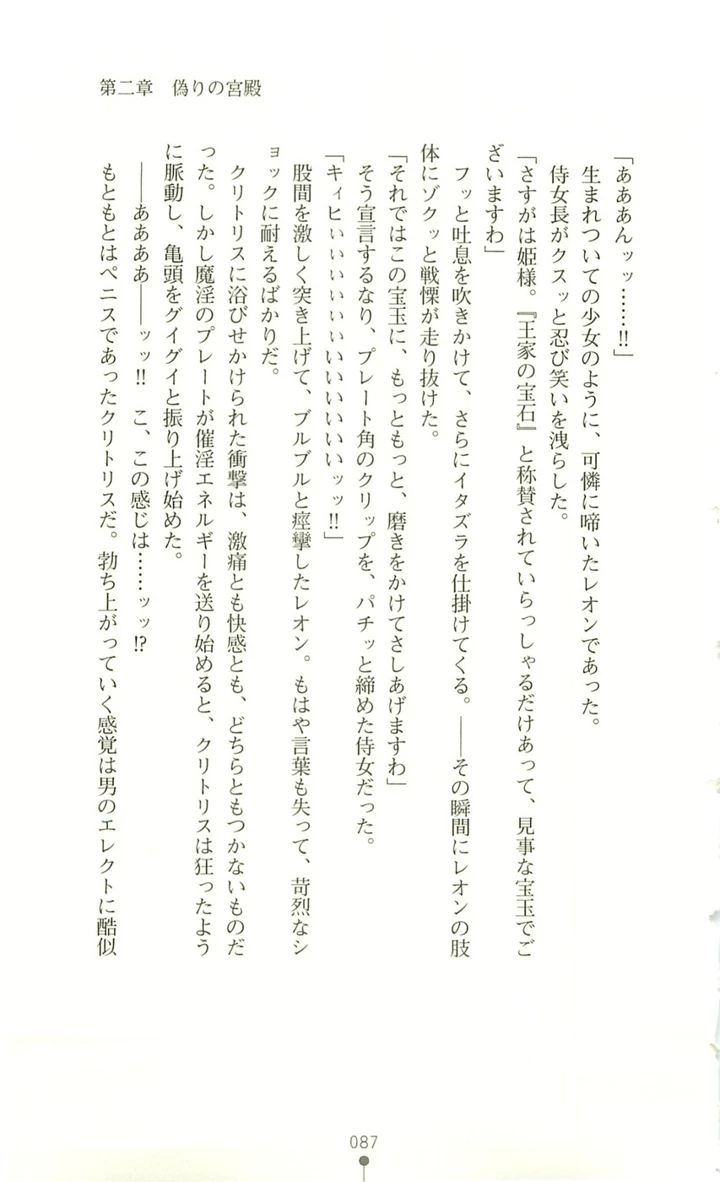 第二章　偽りの宮殿
「あああんッッ……!!」
　生まれついての少女のように、可憐に啼いたレオンであった。
　侍女長がクスッと忍び笑いを洩らした。
「さすがは姫様。『王家の宝石』と称賛されていらっしゃるだけあって、見事な宝玉でご
ざいますわ」
　フッと吐息を吹きかけて、さらにイタズラを仕掛けてくる。――その瞬間にレオンの肢
体にゾクッと戦慄が走り抜けた。
「それではこの宝玉に、もっともっと、磨きをかけてさしあげますわ」
　そう宣言するなり、プレート角のクリップを、パチッと締めた侍女だった。
「キィヒぃぃぃぃぃぃいいいいいいッッ!!」
　股間を激しく突き上げて、ブルブルと痙攣したレオン。もはや言葉も失って、苛烈なシ
ョックに耐えるばかりだ。
　クリトリスに浴びせかけられた衝撃は、激痛とも快感とも、どちらともつかないものだ
った。しかし魔淫のプレートが催淫エネルギーを送り始めると、クリトリスは狂ったよう
に脈動し、亀頭をグイグイと振り上げ始めた。
　――ああああ――ッッ!!　こ、この感じは……ッッ!?
　もともとはペニスであったクリトリスだ。勃ち上がっていく感覚は男のエレクトに酷似
087